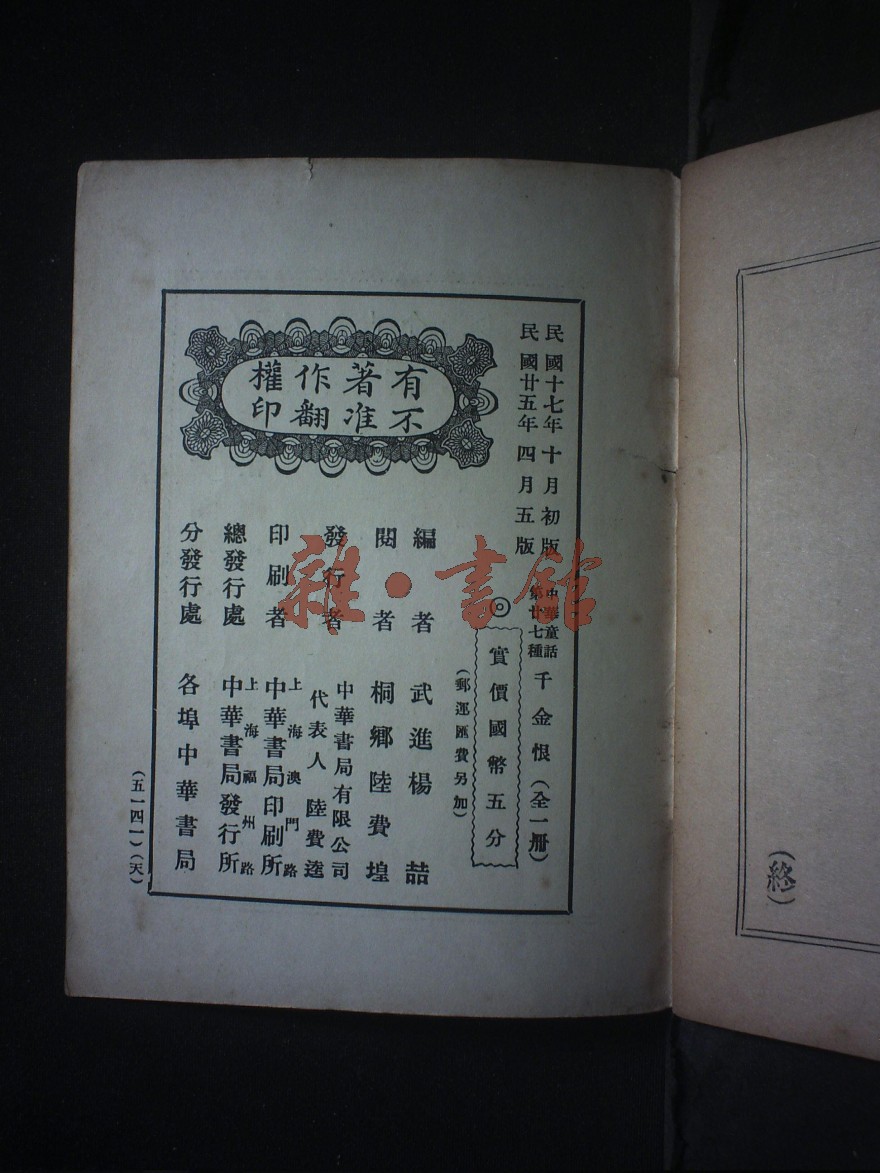 (終)
民國十七年十月初版
民國廿五年四月五版
中華童話
第廿七種
千金恨(全一冊)
◎
實價國幣五分
(郵運匯費另加)
有著作權
不准翻印
編者 武進楊喆
閱者 桐鄉陸費堭
發行者 中華書局有限公司
代表人 陸費逵
印刷者 上海澳門路
中華書局印刷所
總發行處 上海福州路
中華書局發行所
分發行處 各埠中華書局
(五一四一)(天)
雜·書館